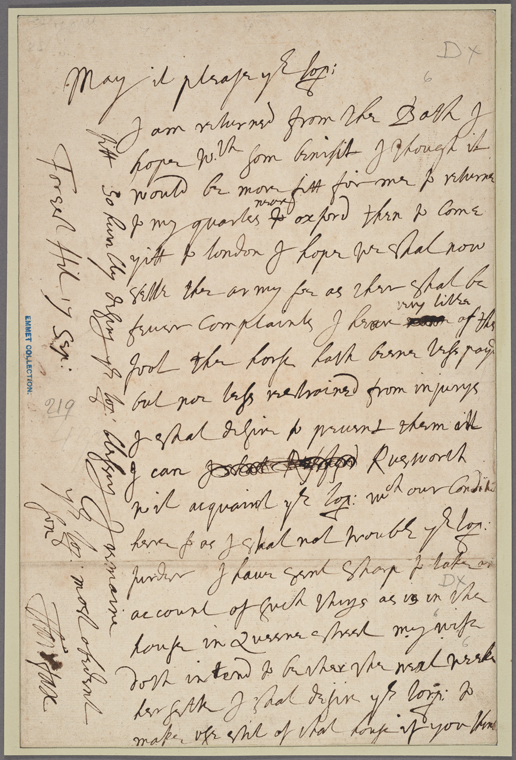 D x
6
May it please yr Lop:
I am returned from the Bath I
hope wth som benifit I though it
would be more fitt for me to returne
to my quarters neare oxford then to come
yitt to london I hope we shal now
setle the army soe as ther shal be
fewer Complaints I heare very litle of the
foot the horse hath beene less payd
but not less restrained from injurys
I shal desire to prevent them all
I can Rusworth
wil acquaint yr Lop: wth our Condition
heere so as I shal not trouble yr Lop:
further I have sent Sharp to take an
account of such things as is in the
D x
house in Queene streek my wife
doth intend to be ther the next weeke
6
her selfe I shal desire yr Lop: to
make use stil of that house if you thinke
fitt so humbly desiring yr Lo: blessing I remaine
yr Lo: most obedient
son
Tho: Fairfax
Forest Hil 17 Sep:
EMMET COLLECTION.
219